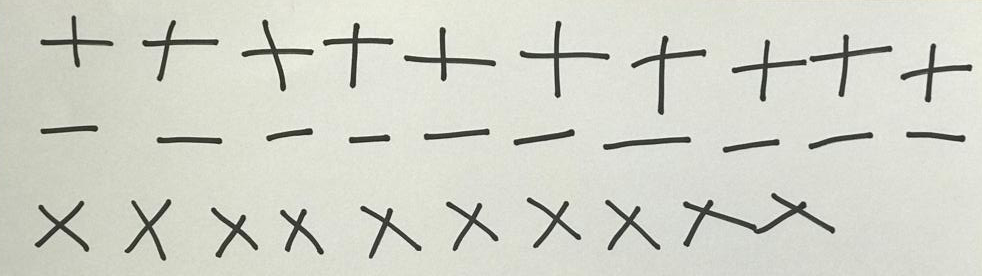 + + + + + + + + + +
- - - - - - - - - -
× × × × × × × × × ×